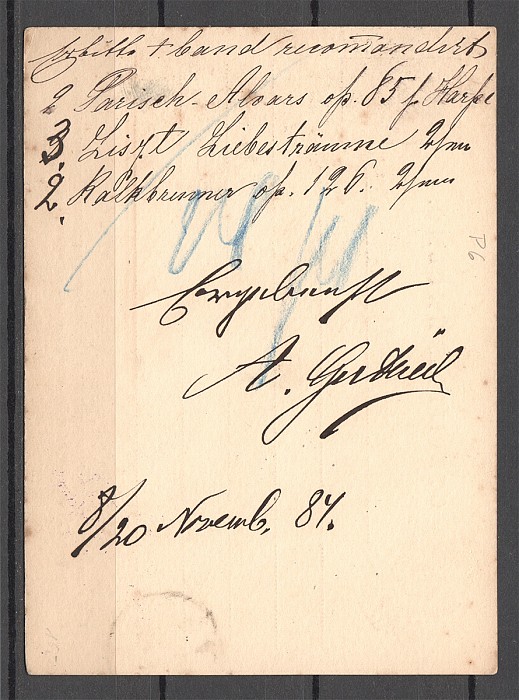 Erbitte + band recomandirt
2 Parisch-Alvars op. 85 f. Harfe
3. Liszt Liebesträume 2/ms
2. Kalkbrenner op. 126. 2/ms
Ergebenst
A.
8/20 Novemb. 84.
P6